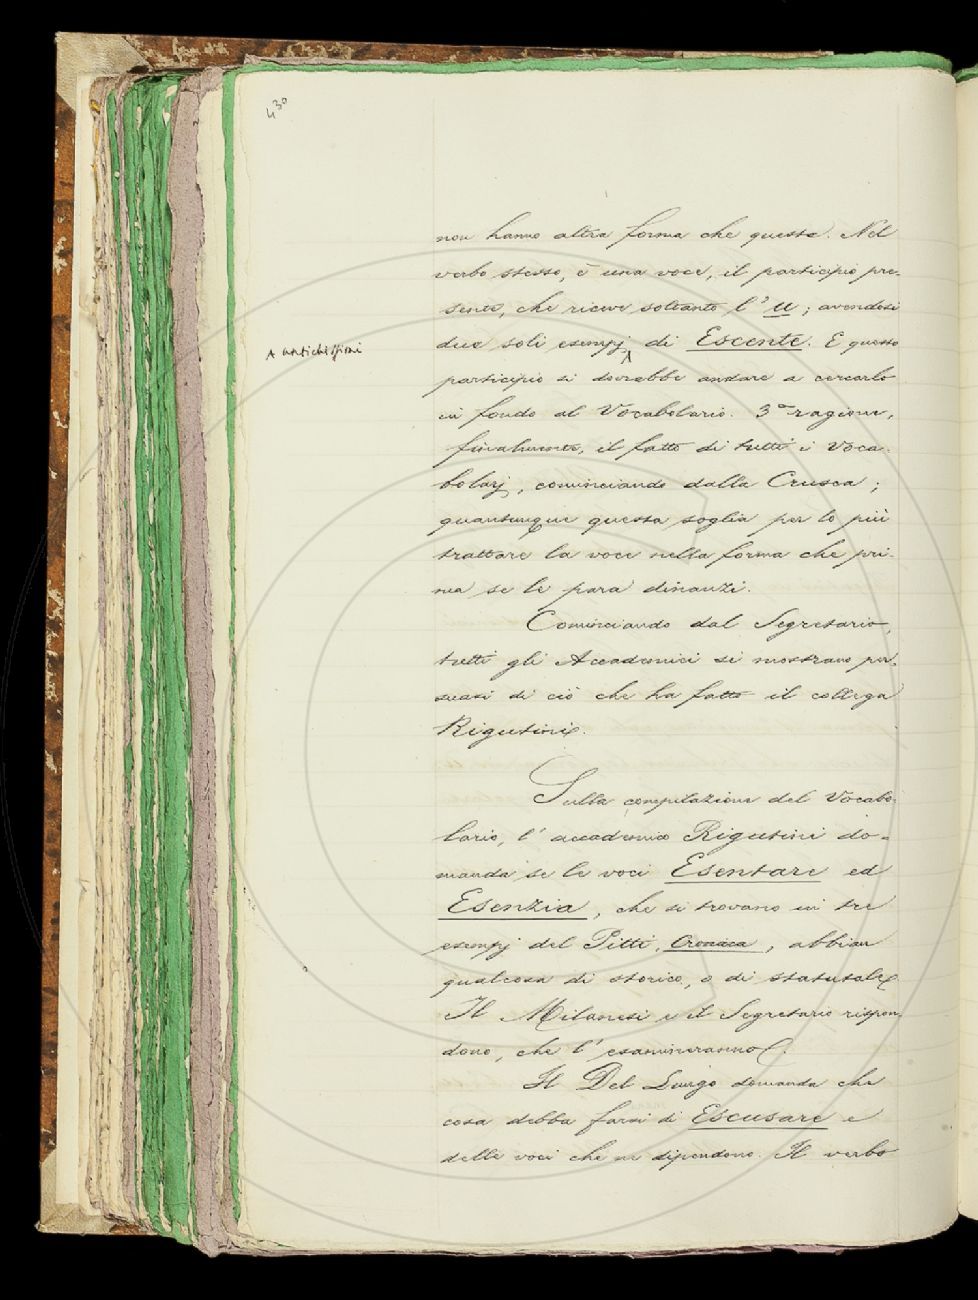 430
non hanno altra forma che queste. Nel
verbo stesso, è una voce, il participio pre-
sente, che riceve soltanto l'u; avendosi
due soli esempj di Escente. E questo
^ antichissimi
participio si dovrebbe andare a cercarlo
in fondo al Vocabolario. 3a ragione,
finalmente, il fatto di tutti i Voca-
bolarj, cominciando dalla Crusca;
quantunque questa soglia per lo più
trattare la voce nella forma che pri-
ma se le para dinanzi.
Cominciando dal Segretario,
tutti gli Accademici si mostrano per-
suasi di ciò che ha fatto il collega
Rigutini.
Sulla compilazione del Vocabo-
lario, l'accademico Rigutini do-
manda se le voci Esentare ed
Esenzia, che si trovano in tre
esempj del Pitti, Cronaca, abbian
qualcosa di storico, o di statutale.
Il Milanesi e il Segretario rispon-
dono, che l'esamineranno.
Il Del Lungo domanda che
cosa debba farsi di Escusare e
delle voci che ne dipendono. Il verbo